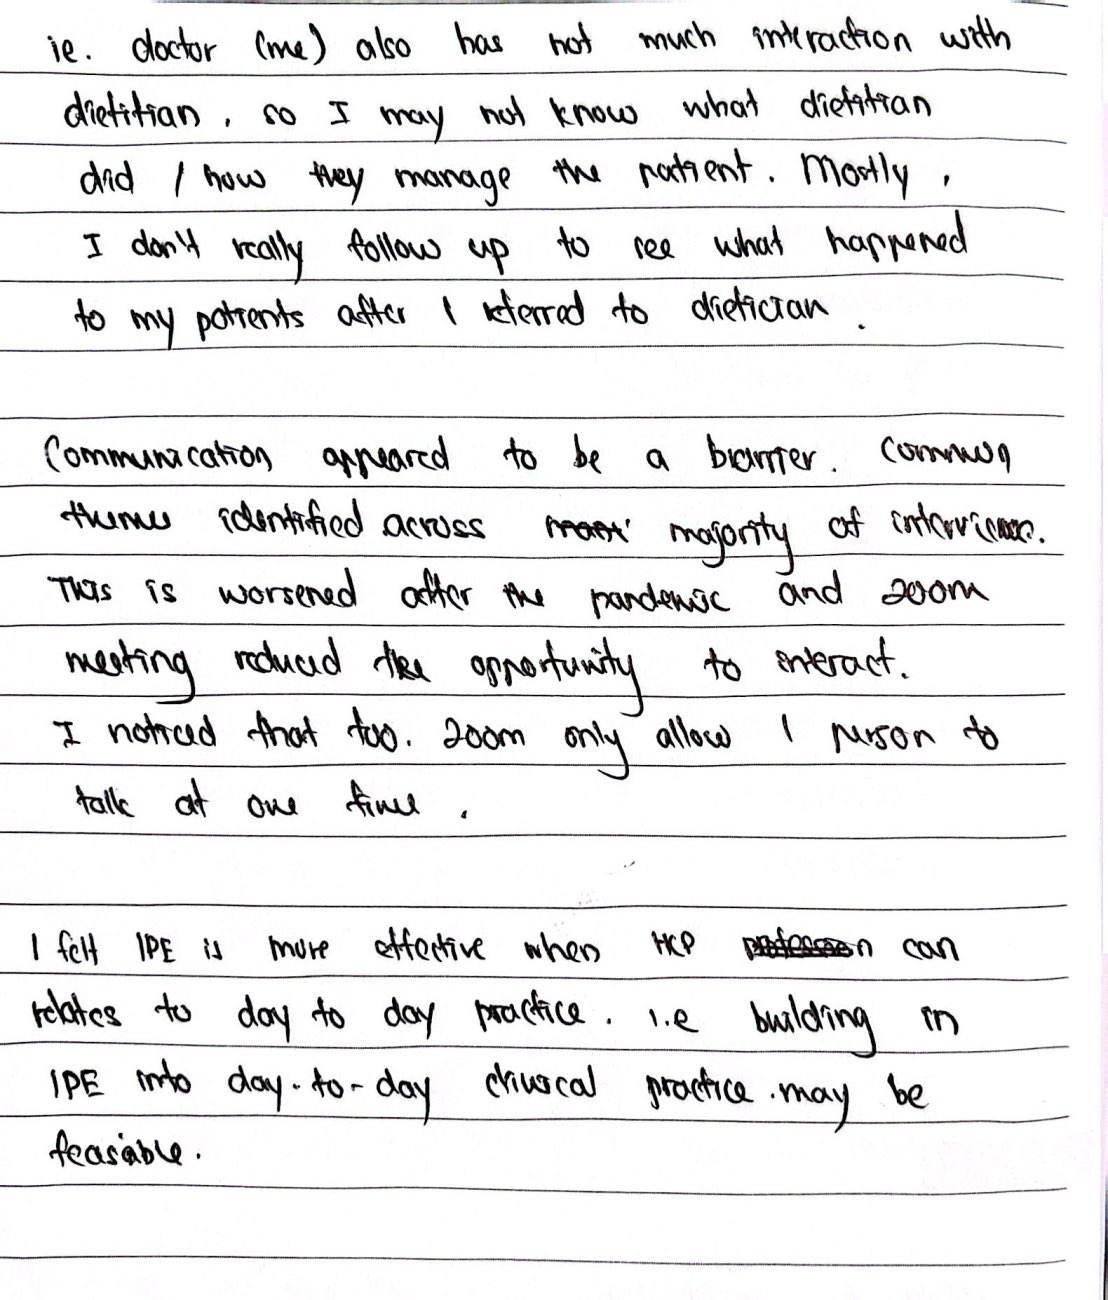 ie. doctor (me) also has not much interaction with
dietitian, so I may not know what dietitian
did / how they manage the patient. Mostly,
I don't really follow up to see what happened
to my patients after I referred to dietician.
Communication appeared to be a barrier. Common
themes identified across majority of interviews.
This is worsened after the pandemic and zoom
meeting reduced the opportunity to interact.
I noticed that too. Zoom only allow 1 person to
talk at one time.
I felt IPE is more effective when HCP can
relates to day to day practice. i.e building in
IPE into day-to-day clinical practice. may be
feasible.